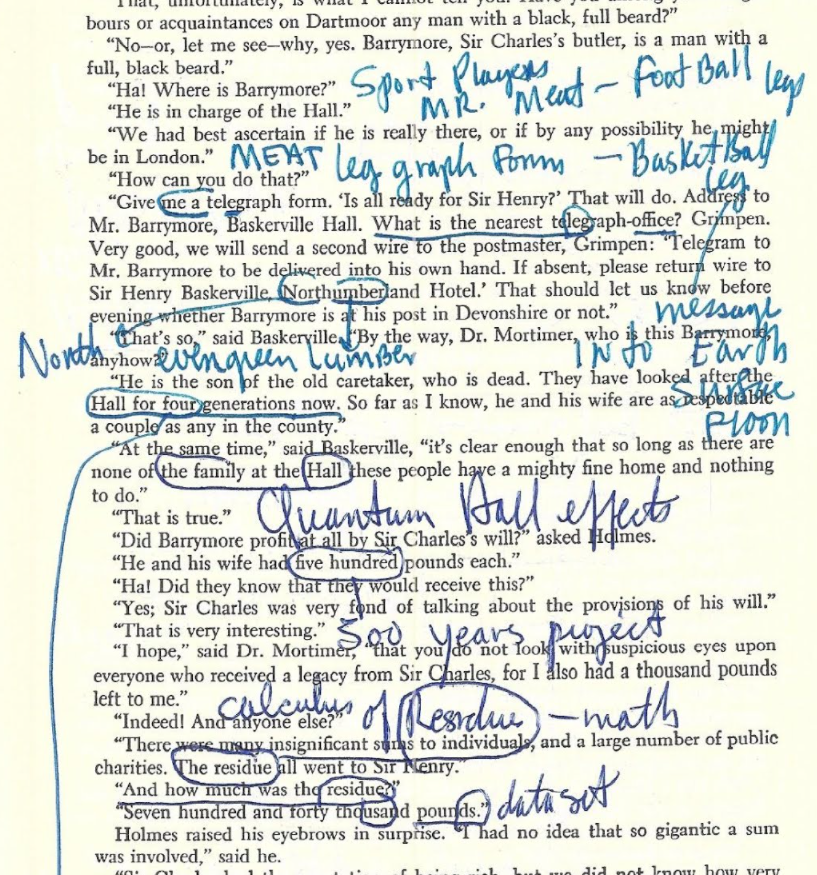 "That, unfortunately, is what I cannot tell you. Have you among your neigh-
bours or acquaintances on Dartmoor any man with a black, full beard?"
"No—or, let me see—why, yes. Barrymore, Sir Charles's butler, is a man with a
full, black beard."
"Ha! Where is Barrymore?" Sport Players
MR. Meat – FootBall legs
"He is in charge of the Hall."
"We had best ascertain if he is really there, or if by any possibility he might
be in London." MEAT leg graph forms – BasketBall
leg
"How can you do that?"
"Give me a telegraph form. 'Is all ready for Sir Henry?' That will do. Address to
Mr. Barrymore, Baskerville Hall. What is the nearest telegraph-office? Grimpen.
Very good, we will send a second wire to the postmaster, Grimpen: 'Telegram to
Mr. Barrymore to be delivered into his own hand. If absent, please return wire to
Sir Henry Baskerville, Northumberland Hotel.' That should let us know before
evening whether Barrymore is at his post in Devonshire or not." message
"That's so," said Baskerville. "By the way, Dr. Mortimer, who is this Barrymore,
North anyhow?" evergreen lumber INto Earth
"He is the son of the old caretaker, who is dead. They have looked after the
Hall for four generations now. So far as I know, he and his wife are as respectable surface
a couple as any in the county." Floor
"At the same time," said Baskerville, "it's clear enough that so long as there are
none of the family at the Hall these people have a mighty fine home and nothing
to do."
"That is true." Quantum Hall effects
"Did Barrymore profit at all by Sir Charles's will?" asked Holmes.
"He and his wife had five hundred pounds each."
"Ha! Did they know that they would receive this?"
"Yes; Sir Charles was very fond of talking about the provisions of his will."
"That is very interesting." 500 years project
"I hope," said Dr. Mortimer, "that you do not look with suspicious eyes upon
everyone who received a legacy from Sir Charles, for I also had a thousand pounds
left to me."
calculus of Residue – math
"Indeed! And anyone else?"
"There were many insignificant sums to individuals, and a large number of public
charities. The residue all went to Sir Henry."
"And how much was the residue?"
"Seven hundred and forty thousand pounds." data set
Holmes raised his eyebrows in surprise. "I had no idea that so gigantic a sum
was involved," said he.